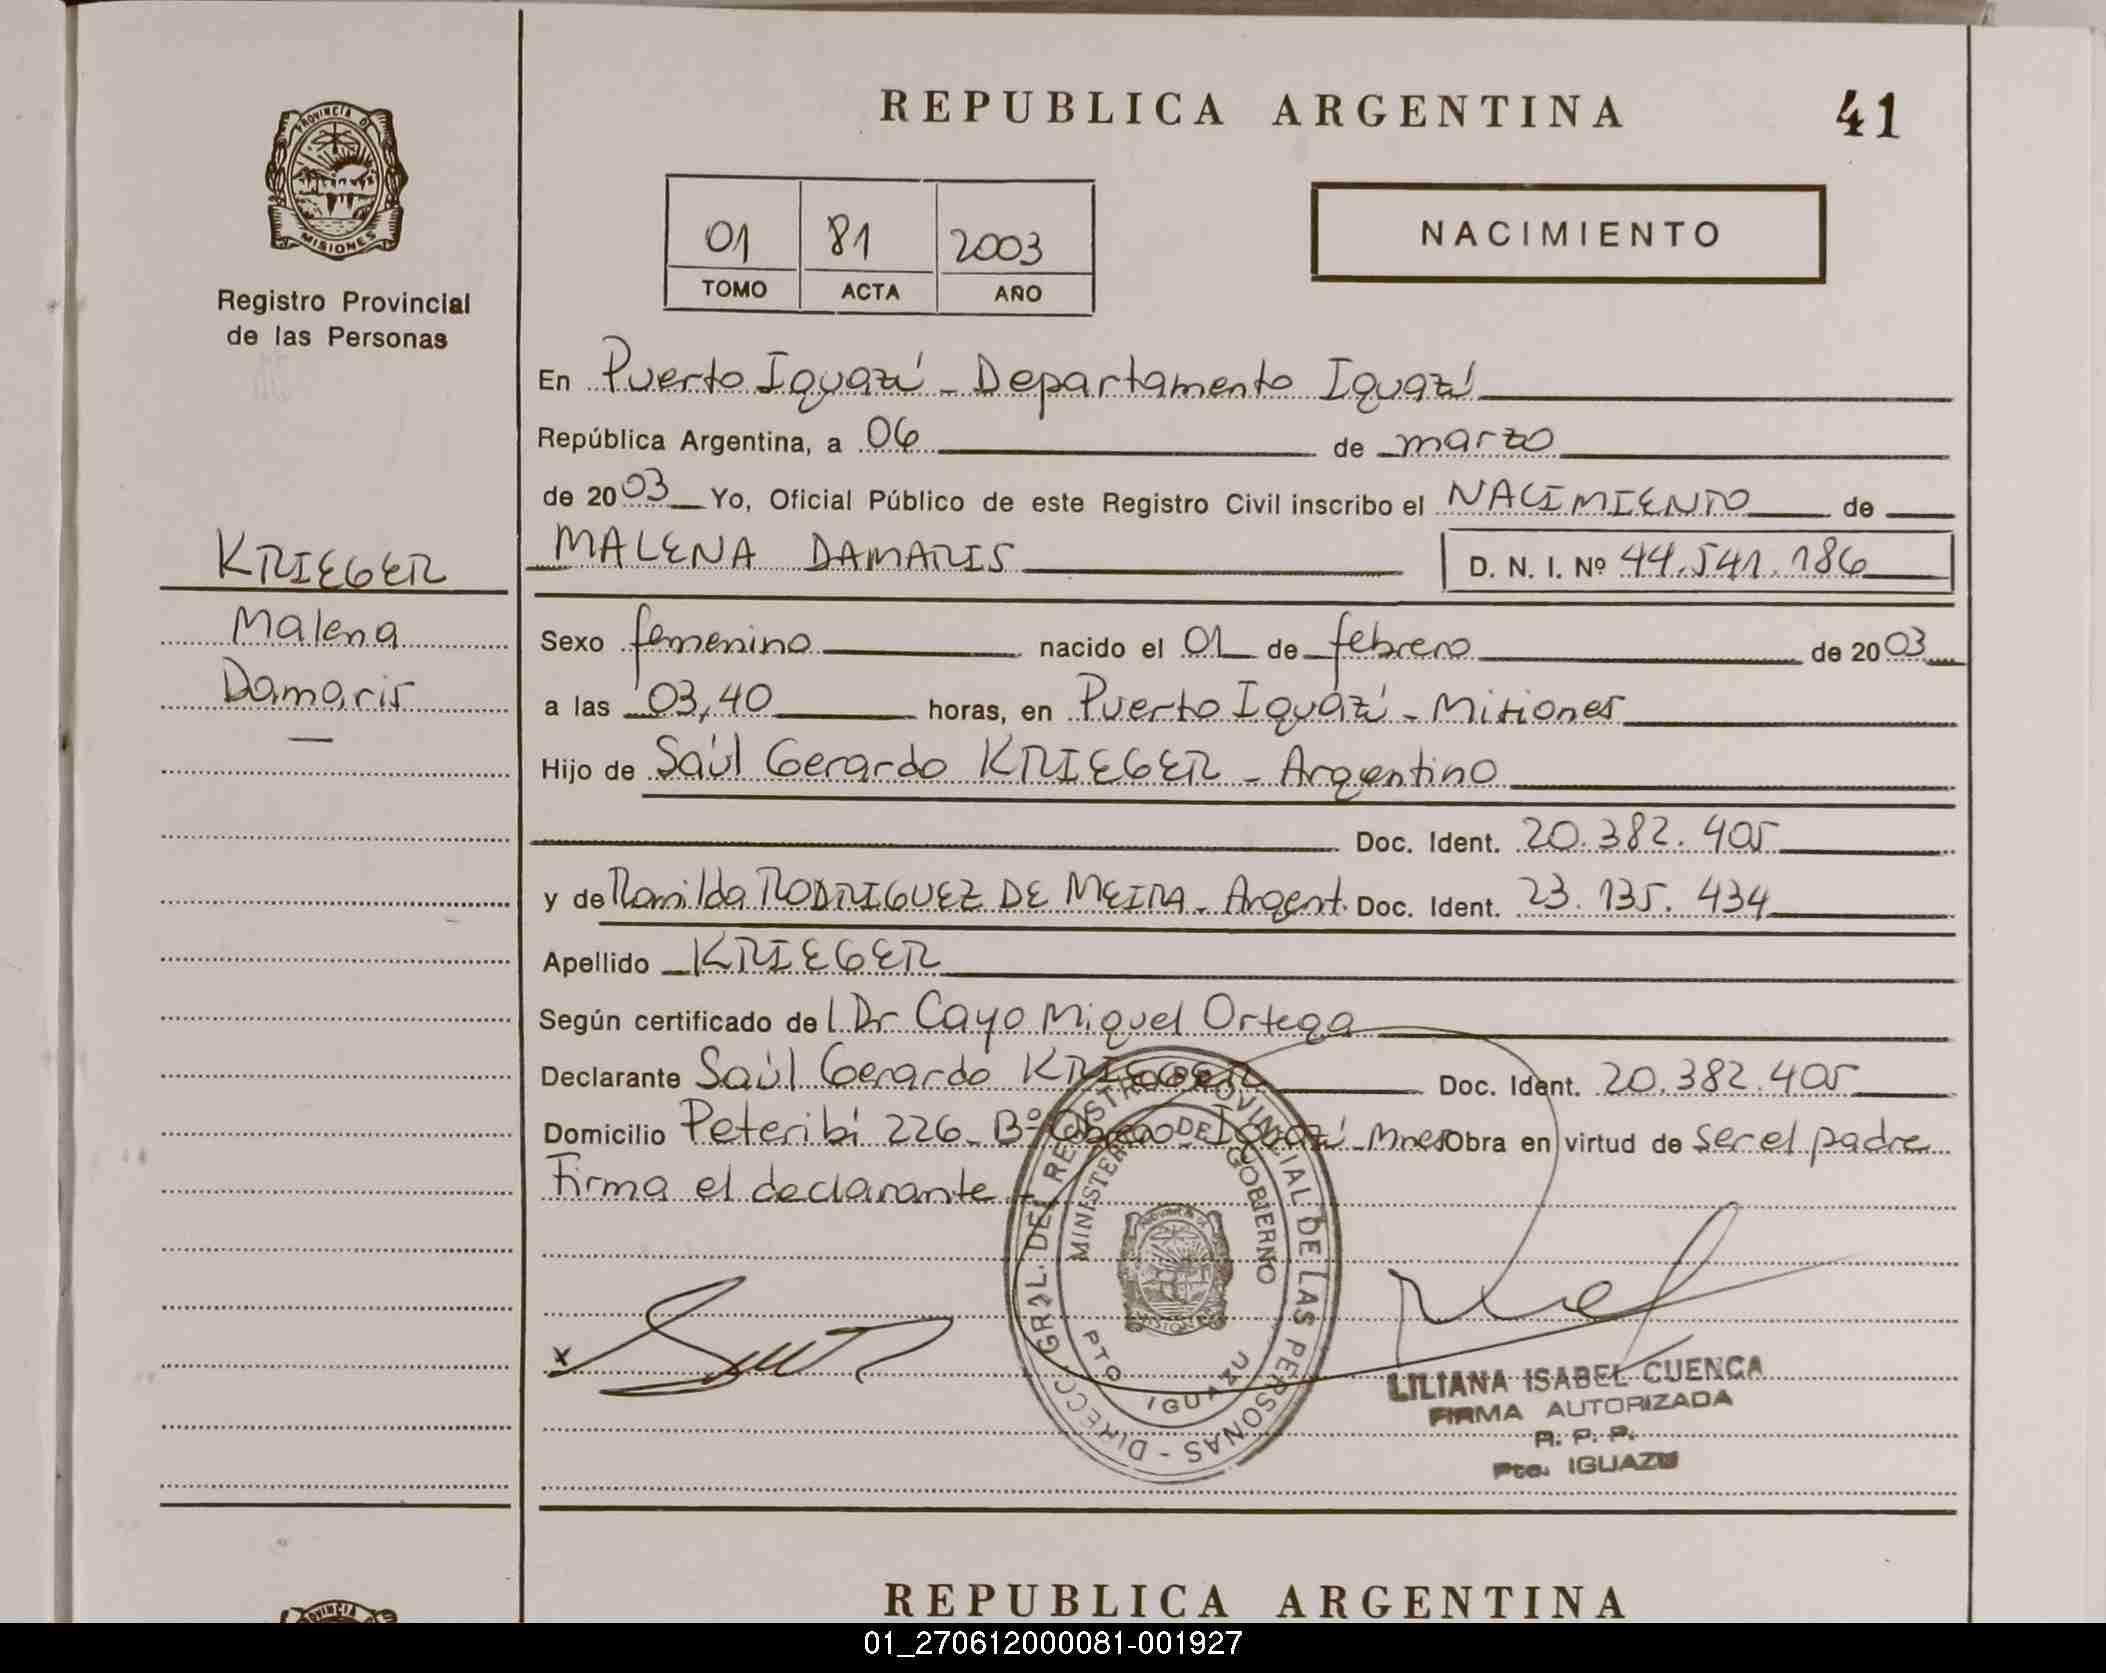 REPUBLICA ARGENTINA
41
PROVINCIA DE
MISIONES
Registro Provincial
de las Personas
01 81 2003
TOMO ACTA AÑO
NACIMIENTO
En Puerto Iguazú - Departamento Iguazú
República Argentina, a 06 de marzo
de 2003 Yo, Oficial Público de este Registro Civil inscribo el NACIMIENTO de
MALENA DAMARIS D. N. I. Nº 44.541.186
KRIEGER
Malena
Damaris
Sexo femenino nacido el 01 de febrero de 2003
a las 03,40 horas, en Puerto Iguazú - Misiones
Hijo de Saúl Gerardo KRIEGER - Argentino
Doc. Ident. 20.382.405
y de Romilda RODRIGUEZ DE MEIRA - Argent. Doc. Ident. 23.135.434
Apellido KRIEGER
Según certificado de l Dr Cayo Miguel Ortega
Declarante Saúl Gerardo KRIEGER Doc. Ident. 20.382.405
Domicilio Peteribí 226 - Bº Obrero - Iguazú - Mnes Obra en virtud de ser el padre
Firma el declarante -
DIRECC. GRAL. DEL REGISTRO PROVINCIAL DE LAS PERSONAS -
MINISTERIO DE GOBIERNO
PTO IGUAZU
x
LILIANA ISABEL CUENCA
FIRMA AUTORIZADA
R. P. P.
Pto. IGUAZU
REPUBLICA ARGENTINA
01_270612000081-001927